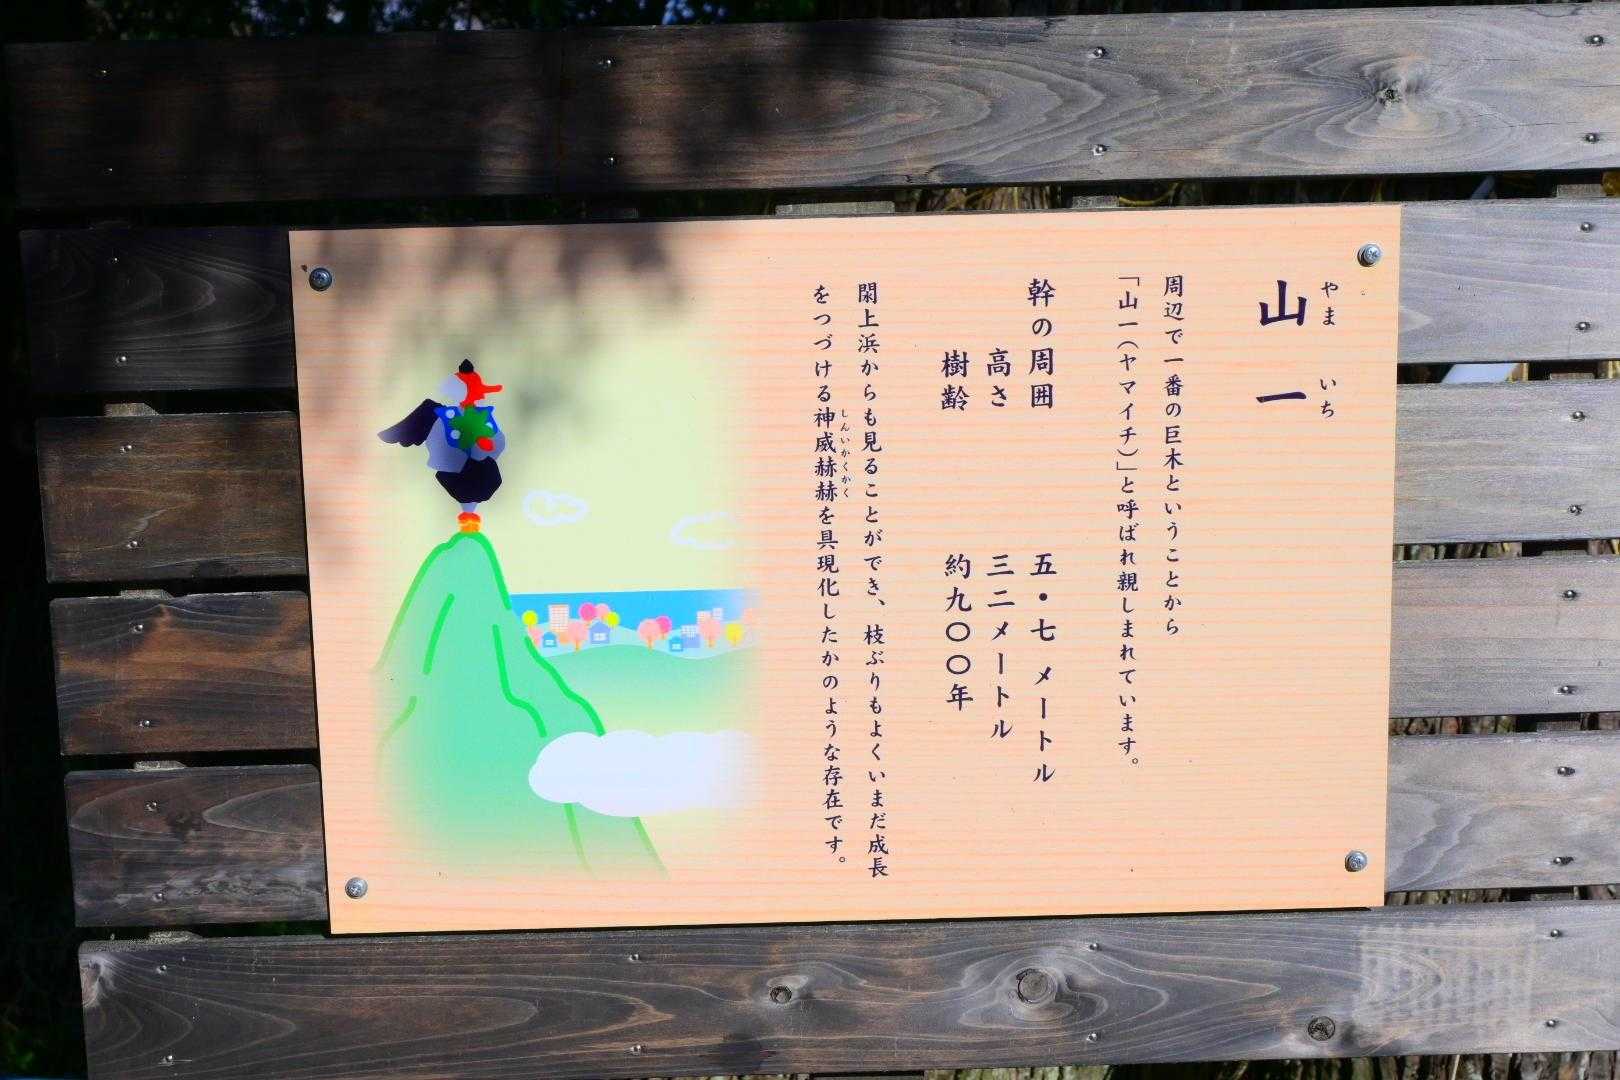 山一
やま いち
周辺で一番の巨木ということから
「山一（ヤマイチ）」と呼ばれ親しまれています。
幹の周囲 五・七メートル
高さ 三二メートル
樹齢 約九〇〇年
閖上浜からも見ることができ、枝ぶりもよくいまだ成長
をつづける神威赫赫を具現化したかのような存在です。
しんいかくかく